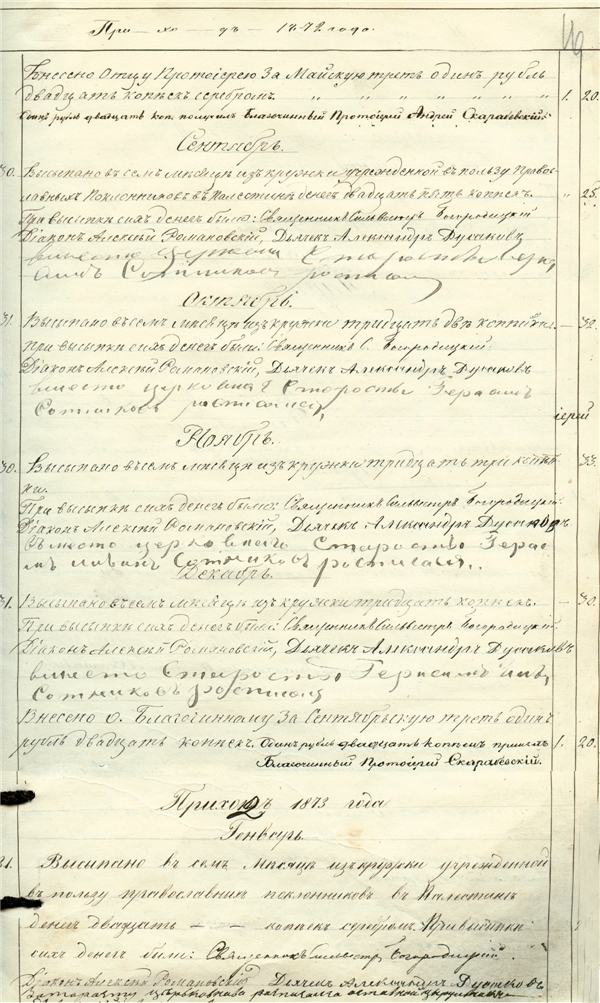 При — хо — дъ — 1872 года.
Внесено Отцу Протоіерею За Майскую треть одинъ рубль
двадцать копѣекъ серебромъ. " " " " " " 1. 20.
Одинъ рубль двадцать коп. получилъ Благочинный Протоіерей Андрей Скарабевскій.
Сентябрь.
30. Высыпано въ семъ мѣсяцѣ изъ кружки учрежденной въ пользу Право-
славныхъ Поклонниковъ въ Палестинѣ денегъ двадцать пять копѣекъ. " 25.
При высыпкѣ сихъ денегъ были: Священникъ Сильвестръ Богородицкій
Діаконъ Алексѣй Романовскій, Дьячекъ Александръ
вместо Церковна Старосты
Сотниковъ
Октябрь.
31. Высыпано въ семъ мѣсяцѣ изъ кружки тридцать двѣ копѣйки. — 32.
При высыпкѣ сихъ денегъ были: Священникъ С. Богородицкій
Діаконъ Алексѣй Романовскій, Дьячекъ Александръ
вместо церковнаго Старосты
Сотниковъ
іерей
Ноябрь.
30. Высыпано въ семъ мѣсяцѣ изъ кружки тридцать три копѣй- 33.
ки.
При высыпкѣ сихъ денегъ были: Священникъ Сильвестръ Богородицкій.
Діаконъ Алексѣй Романовскій, Дьячекъ Александръ
Вместо церковнаго Старосты
Сотниковъ росписался.
Декабрь.
31. Высыпано въ семъ мѣсяцѣ изъ кружки тридцать копѣекъ. — 30.
При высыпкѣ сихъ денегъ были: Священникъ Сильвестръ Богородицкій
Діаконъ Алексѣй Романовскій, Дьячекъ Александръ
вместо Старосты
Сотниковъ
Внесено О. Благочинному За Сентябрьскую треть одинъ
рубль двадцать копѣекъ. Одинъ рубль двадцать копѣекъ принялъ 1. 20.
Благочинный Протоіерей Скарабевскій.
Приходъ 1873 года
2
Генварь.
31. Высыпано въ семъ Мѣсяцѣ изъ кружки учрежденной
въ пользу православныхъ поклонниковъ въ Палестинѣ
денегъ двадцать — — копѣекъ серебромъ. При высыпкѣ
сихъ денегъ были: Священникъ Сильвестръ Богородицкій.
Діаконъ Алексѣй Романовскій Дьячекъ Александръ